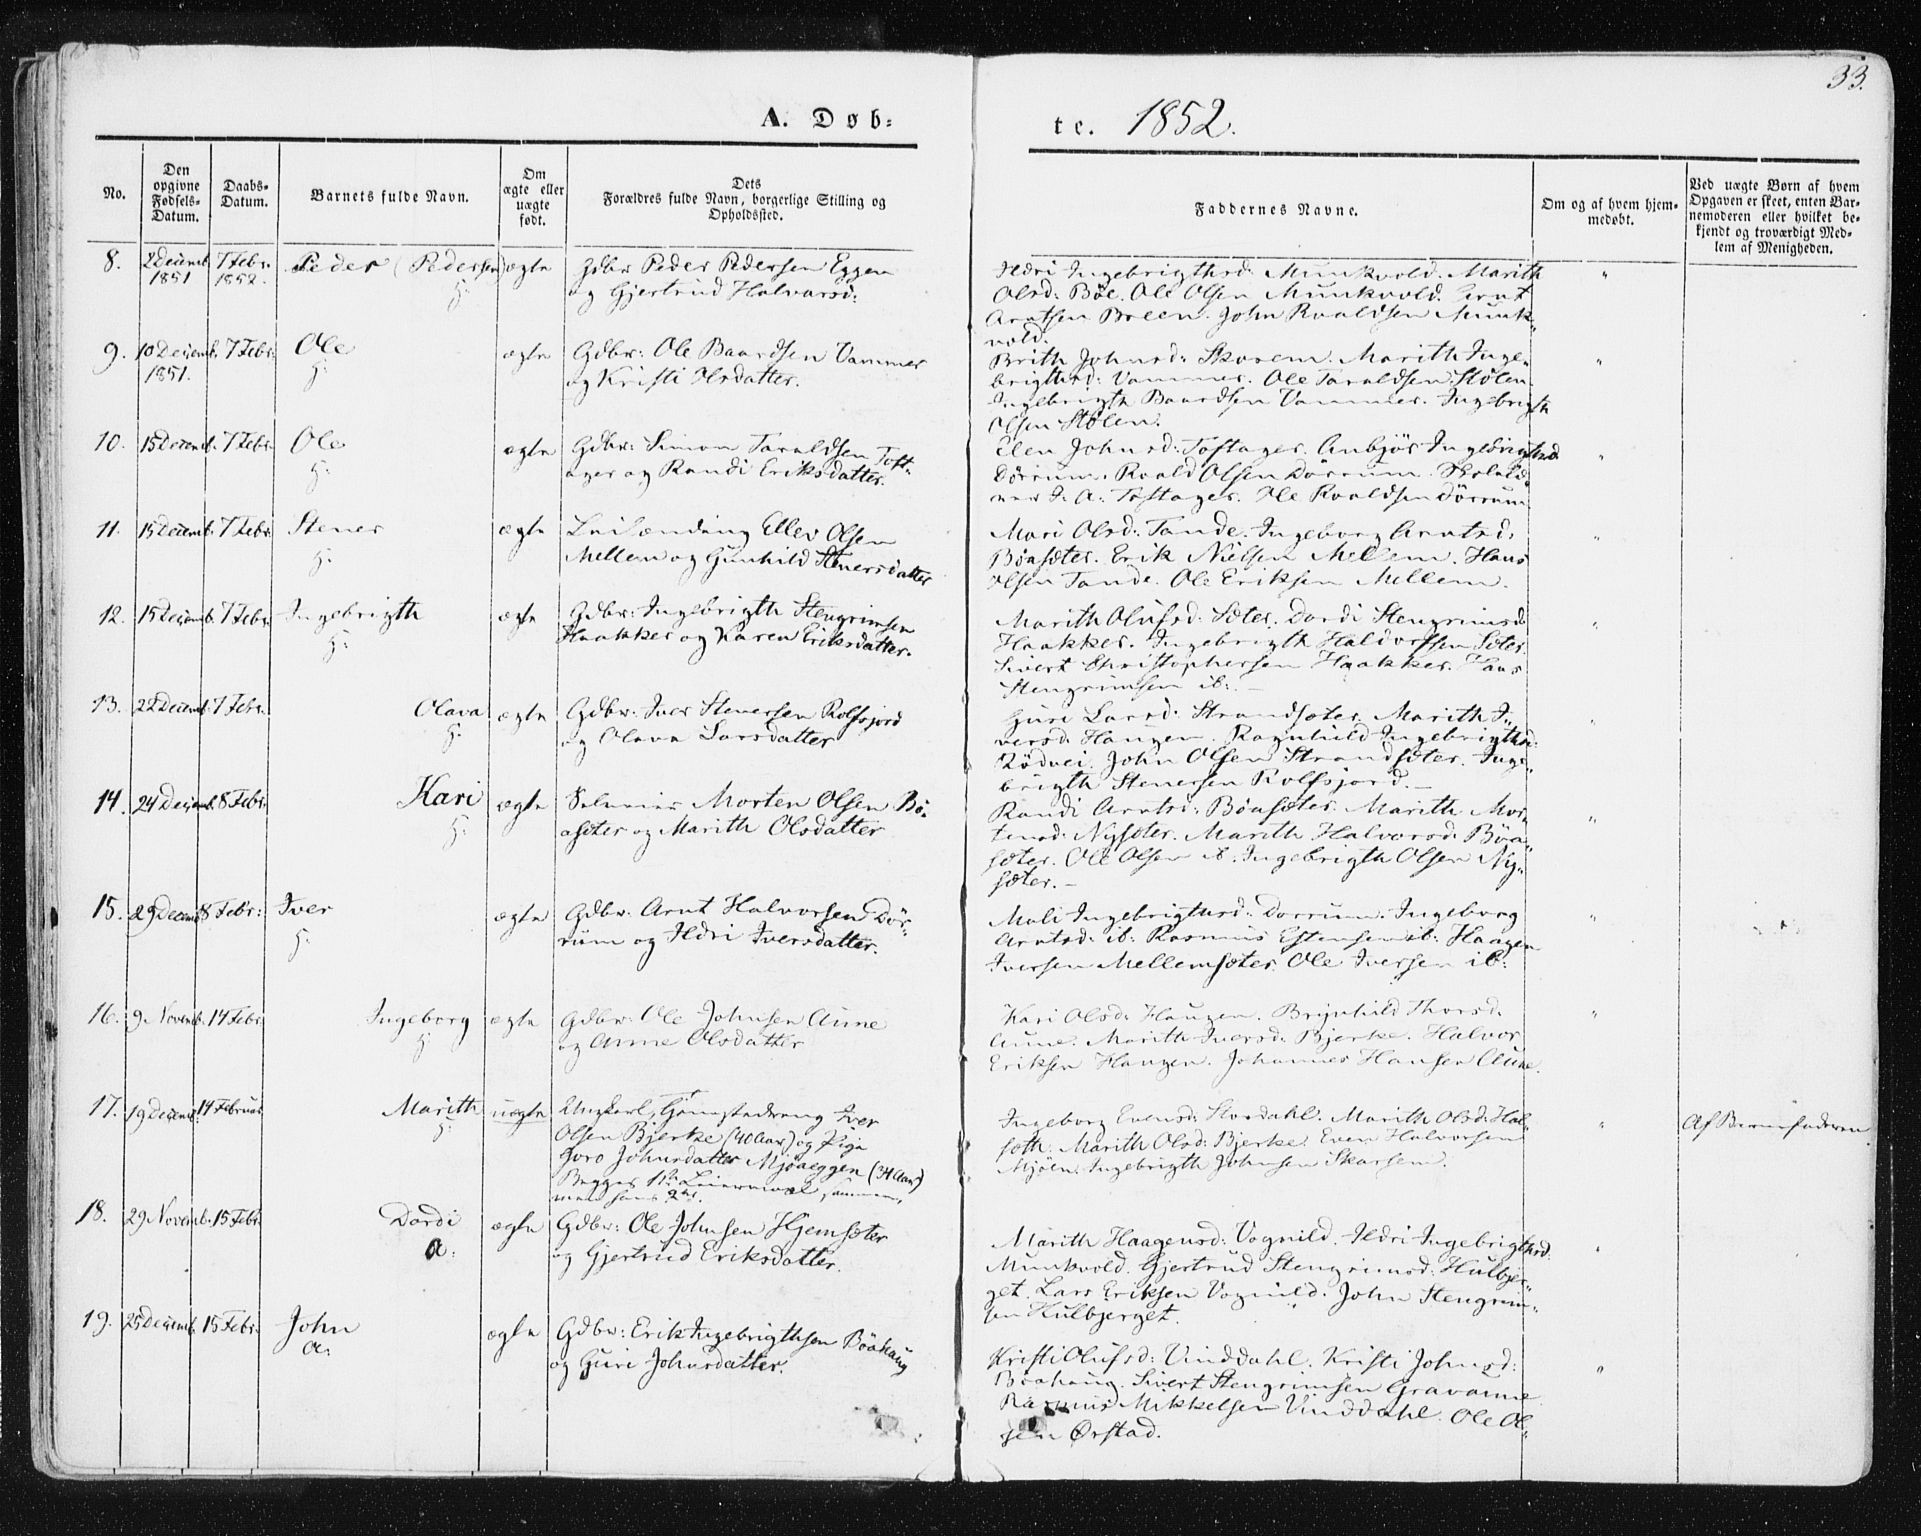 33.
A. Døb-
te. 1852.
No.
Den opgivne Fødsels-Datum.
Daabs-Datum.
Barnets fulde Navn.
Om ægte eller uægte født.
Dets Forældres fulde Navn, borgerlige Stilling og Opholdssted.
Faddernes Navne.
Om og af hvem hjem-medøbt.
Ved uægte Børn af hvem Opgaven er skeet, enten Bar-nemoderen eller hvilket be-kjendt og troværdigt Med-lem af Menigheden.
8. 2 Decemb. 1851 7 Febr. 1852. Peder (Pedersen) H: ægte
Gdbr: Peder Pedersen Eggen
og Gjertrud Halvorsd:
Ildri Ingebrigthsd: Munkvold. Marith
Olsd: Böe. Ole Olsen Munkvold. Arnt
Arntsen Böe John Roaldsen Munk-
vold.
9. 10 Decemb. 1851. 7 Febr. Ole H: ægte
Gdbr: Ole Baardsen Vammer
og Kristi Olsdatter.
Brith Johnsd: Skorem. Marith Inge-
brigthsd: Vammer. Ole Taraldsen Stölen.
Ingebrigth Baardsen Vammer. Ingebrigth
Olsen Stölen.
10. 15 Decemb. 7 Febr. Ole H: ægte
Gdbr: Simon Taraldsen Toft-
ager og Randi Eriksdatter.
Elen Johnsd: Toftager. Anbjör Ingebrigthsd:
Dörrum. Roald Olsen Dörrum. Skolelä-
rer I. A. Toftager. Ole Roaldsen Dörrum
11. 15 Decemb. 7 Febr. Stener H: ægte
Leilænding Ellev Olsen
Mellem og Gunhild Stenersdatter
Mari Olsd: Tande. Ingeborg Arntsd:
Böasæter. Erik Nielsen Mellem. Hans
Olsen Tande. Ole Eriksen Mellem.
12. 15 Decemb. 7 Febr. Ingebrigth H: ægte
Gdbr: Ingebrigth Stengrimsen
Haakker og Karen Eriksdatter.
Marith Olufsd: Sæter. Dordi Stengrimsd:
Haakker. Ingebrigth Haldorssen Sæter.
Sivert Christophersen Haakker. Hans
Stengrimsen ib:
13. 22 Decemb. 7 Febr. Olava H: ægte
Gdbr: Iver Stenersen Rolfsjord
og Olava Larsdatter
Guri Larsd: Strandsæter. Marith I-
versd: Haugen. Ragnhild Ingebrigthsd:
Rödvei. John Olsen Strandsæter. Inge-
brigth Stenersen Rolfsjord.
14. 24 Decemb. 8 Febr. Kari H: ægte
Selveier Morten Olsen Bö-
asæter og Marith Olsdatter
Randi Arntsd: Böasæter. Marith Mor-
tensd: Nysæter. Marith Halvorsd: Böa-
sæter. Ole Olsen ib. Ingebrigth Olsen Ny-
sæter.
15. 29 Decemb. 8 Febr: Iver H: ægte
Gdbr: Arnt Halvorsen Dör-
rum og Ildri Iversdatter.
Mali Ingebrigthsd: Dörrum. Ingeborg
Arntsd: ib: Rasmus Estensen ib: Haagen
Iversen Mellemsæter. Ole Iversen ib:
16. 9 Novemb. 14 Febr. Ingeborg H: ægte
Gdbr: Ole Johnsen Aune
og Anne Olsdatter
Kari Olsd: Haugen. Brynhild Thorsd:
Aune. Marith Iversd: Bjerke. Halvor
Eriksen Haugen. Johannes Hansen Aune.
17. 19 Decemb. 14 Februar Marith H: uægte
Ungkarl, Iver
Olsen Bjerke (40 Aar) og Pige
Goro Johnsdatter Mjöaeggen (34 Aar)
Begges 1ste Leiermaal sammen,
men hans 2det.
Ingeborg Evensd: Stordahl. Marith Olsd: Hal-
sæth. Marith Olsd: Bjerke. Even Halvorsen
Mjöen. Ingebrigth Johnsen Skarsem.
Af Barnefaderen
18. 29 Novemb. 15 Febr. Dordi A: ægte
Gdbr: Ole Johnsen Hjemsæter
og Gjertrud Eriksdatter.
Marith Haagensd: Vognild. Ildri Ingebrigthsd:
Munkvold. Gjertrud Stengrimsd: Hulbjer-
get. Lars Eriksen Vognild. John Stengrim-
sen Hulbjerget.
19. 25 Decemb. 15 Febr. John A: ægte
Gdbr: Erik Ingebrigthsen Böahaug
og Guri Johnsdatter.
Kristi Olufsd: Vinddahl. Kristi Johnsd:
Böahaug. Sivert Stengrimsen Gravaune.
Rasmus Mikkelsen Vinddahl. Ole Ol-
sen Ørstad.